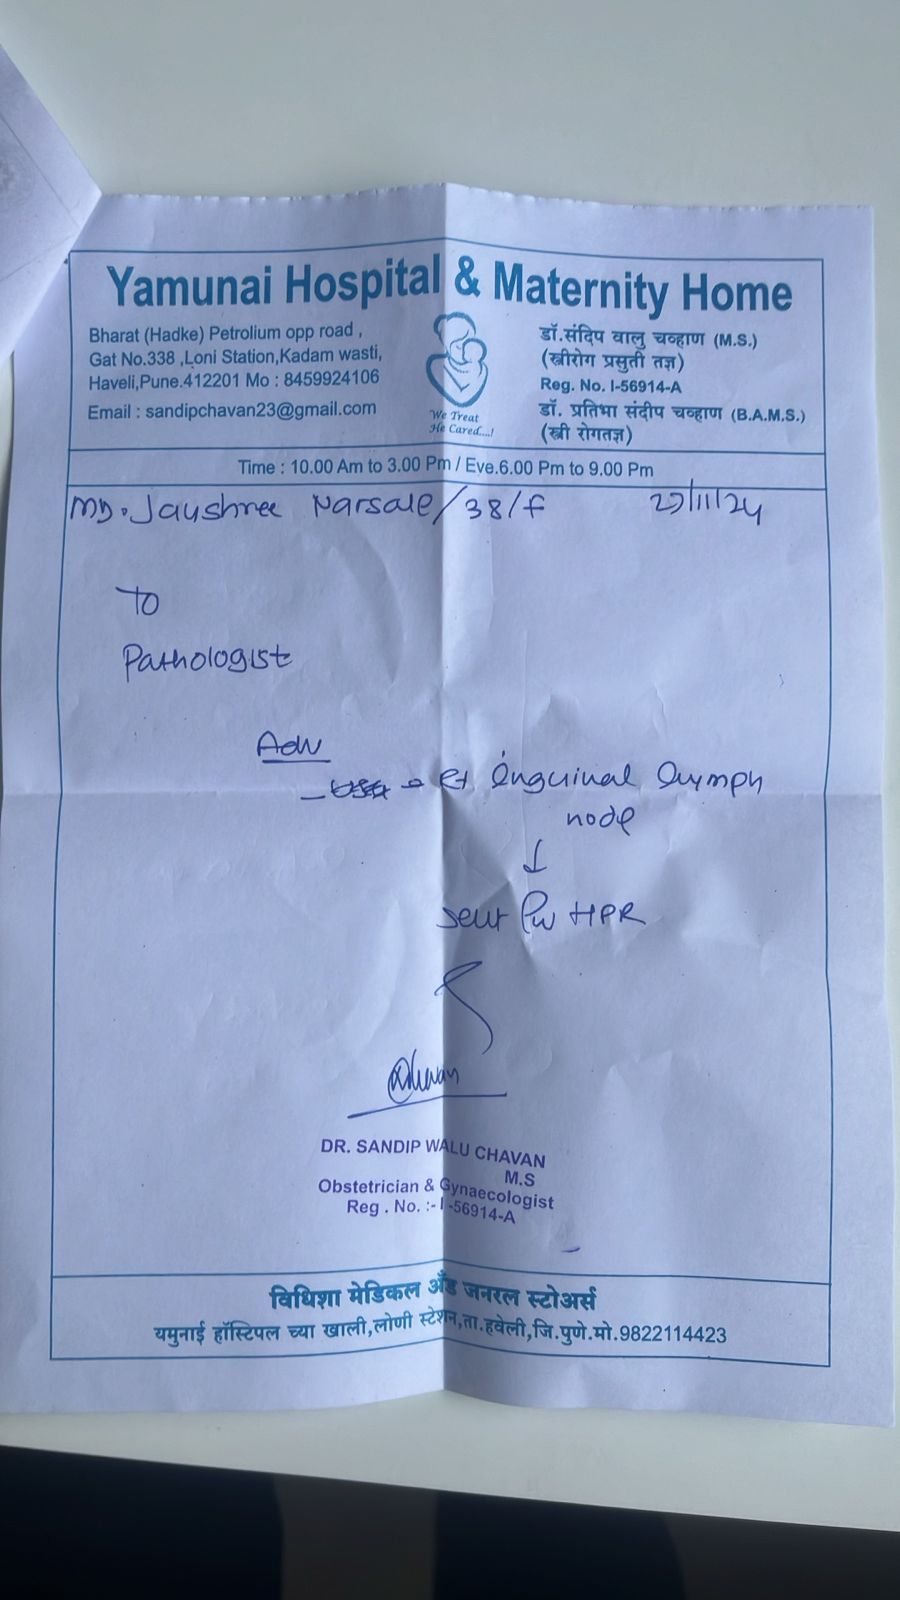 Yamunai Hospital & Maternity Home
Bharat (Hadke) Petrolium opp road ,
Gat No.338 ,Loni Station,Kadam wasti,
Haveli,Pune.412201 Mo : 8459924106
Email : sandipchavan23@gmail.com
We Treat
He Cared....!
डॉ.संदिप वालु चव्हाण (M.S.)
(स्त्रीरोग प्रसुती तज्ञ)
Reg. No. I-56914-A
डॉ. प्रतिभा संदीप चव्हाण (B.A.M.S.)
(स्त्री रोगतज्ञ)
Time : 10.00 Am to 3.00 Pm / Eve.6.00 Pm to 9.00 Pm
Jayshree Narsale/38/f 27/11/24
To
Pathologist
Adv
Rt inguinal lymph
node
↓
sent for HPR
Chavan
DR. SANDIP WALU CHAVAN
M.S
Obstetrician & Gynaecologist
Reg . No. :- I -56914-A
विधिशा मेडिकल अँड जनरल स्टोअर्स
यमुनाई हॉस्टिपल च्या खाली,लोणी स्टेशन,ता.हवेली,जि.पुणे.मो.9822114423